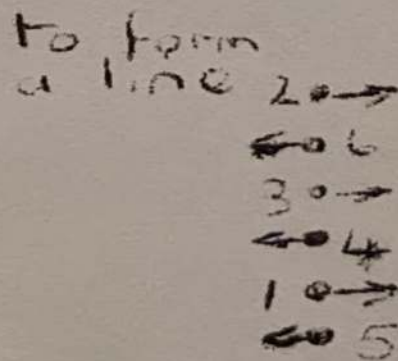 to form
a line 2
6
3
4
1
5